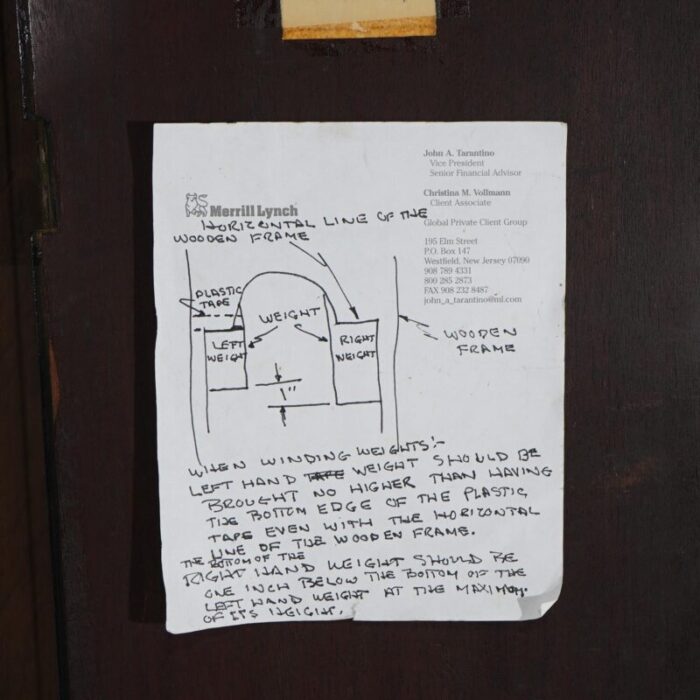 John A. Tarantino
Vice President
Senior Financial Advisor
Christina M. Vollmann
Client Associate
Merrill Lynch
Global Private Client Group
195 Elm Street
P.O. Box 147
Westfield, New Jersey 07090
908 789 4331
800 285 2873
FAX 908 232 8487
john_a_tarantino@ml.com
HORIZONTAL LINE OF THE
WOODEN FRAME
PLASTIC
TAPE
WEIGHT
LEFT
WEIGHT
RIGHT
WEIGHT
WOODEN
FRAME
1"
WHEN WINDING WEIGHTS:-
LEFT HAND TAPE WEIGHT SHOULD BE
BROUGHT NO HIGHER THAN HAVING
THE BOTTOM EDGE OF THE PLASTIC
TAPE EVEN WITH THE HORIZONTAL
LINE OF THE WOODEN FRAME.
THE BOTTOM OF THE
RIGHT HAND WEIGHT SHOULD BE
ONE INCH BELOW THE BOTTOM OF THE
LEFT HAND WEIGHT AT THE MAXIMUM
OF ITS HEIGHT.